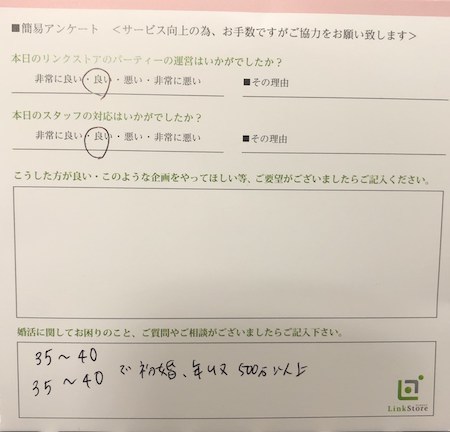 ■簡易アンケート <サービス向上の為、お手数ですがご協力をお願い致します>
本日のリンクストアのパーティーの運営はいかがでしたか?
非常に良い・良い・悪い・非常に悪い ■その理由
本日のスタッフの対応はいかがでしたか?
非常に良い・良い・悪い・非常に悪い ■その理由
こうした方が良い・このような企画をやってほしい等、ご要望がございましたらご記入ください。
婚活に関してお困りのこと、ご質問やご相談がございましたらご記入下さい。
35〜40
35〜40 で初婚、年収500万以上
LinkStore